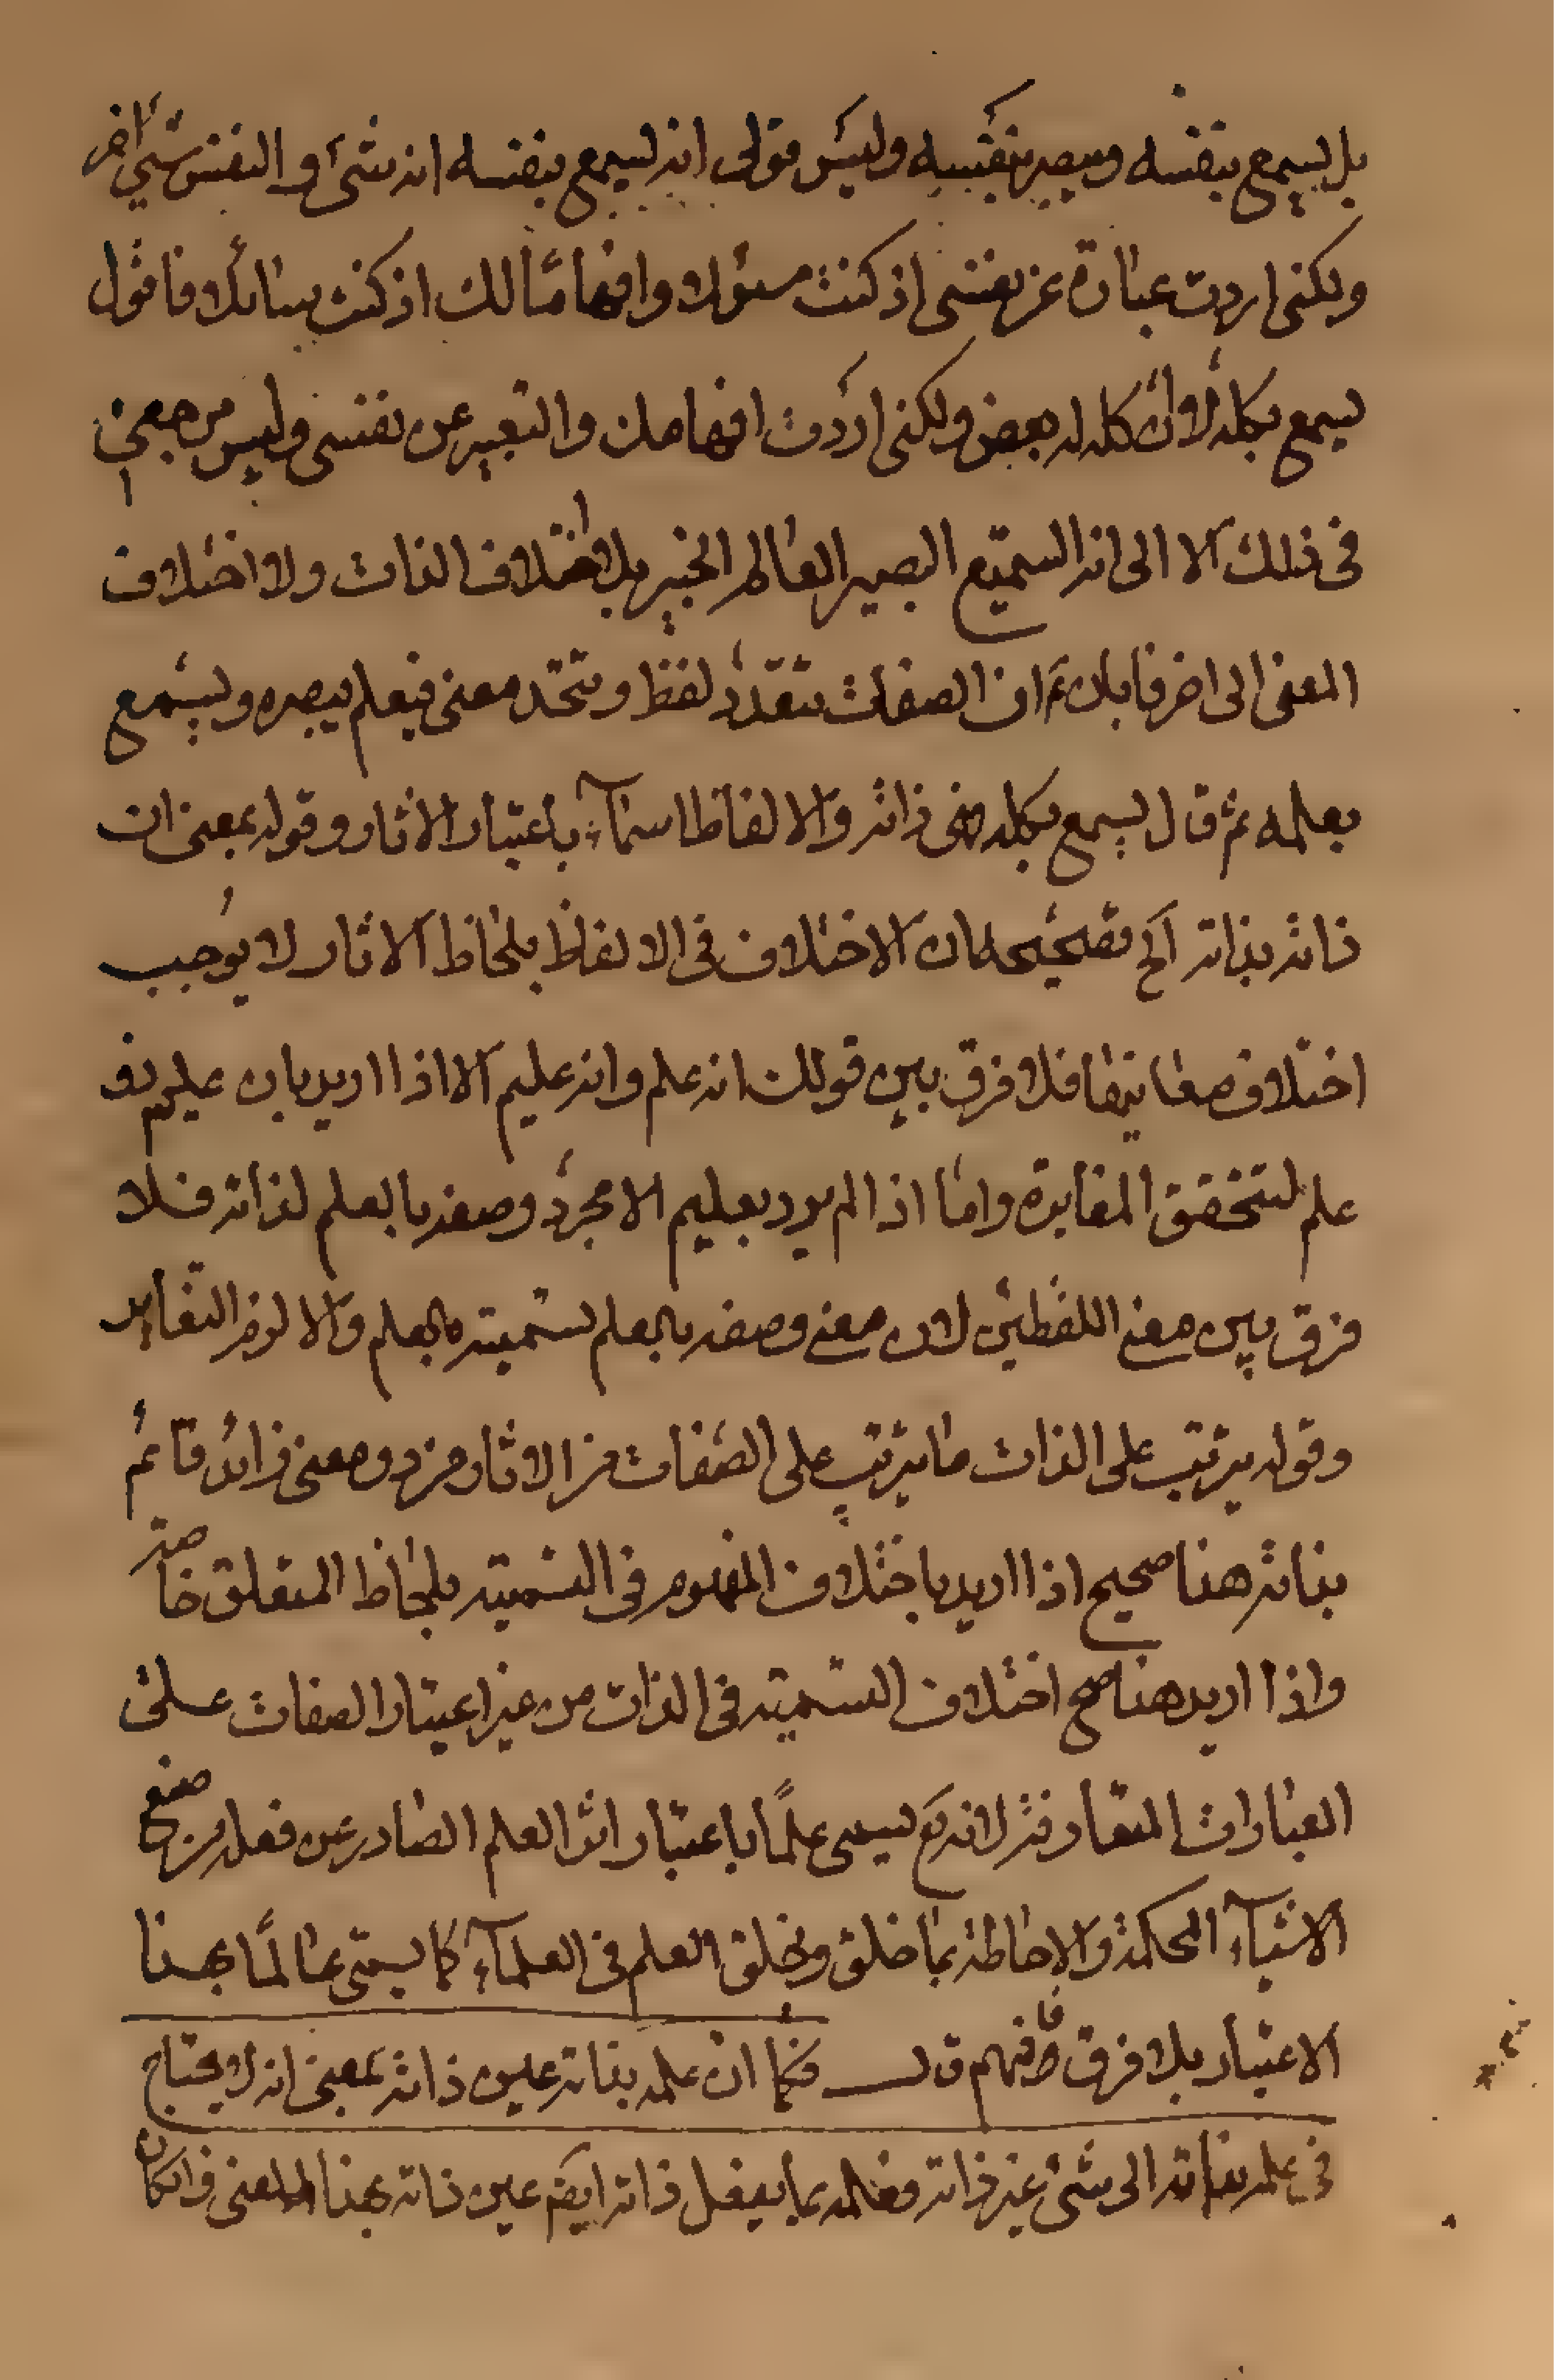 بل يسمع بنفسه ويبصر بنفسه وليس قولى انه يسمع بنفسه انه شئ و النفس شئ آخر
ولكنى اردت عبارة عن نفسى اذ كنت مسئولا وافهاما لك اذ كنت سائلا فاقول
يسمع بكله لا ان كله له بعض ولكنى اردت افهامك والتعبير عن نفسى وليس مرجعى
فى ذلك الا الى انه السميع البصير العالم الخبير بلا اختلاف الذات ولا اختلاف
المعنى الى اخر فابان ان الصفات تتعدد لفظا وتتحد معنى فيعلم ببصره ويسمع
بعلمه ثم قال يسمع بكله فهى ذاته والالفاظ اسماء باعتبار الاثار وقوله بمعنى ان
ذاته بذاته الخ تصحيحه ان الاختلاف فى الالفاظ بلحاظ الاثار لا يوجب
اختلاف معانيها فلا فرق بين قولك انه علم وانه عليم الا اذا اريد بان عليم ذو
علم لتحقق المغايرة واما اذا لم يرد بعليم الا مجرد وصفه بالعلم لذاته فلا
فرق بين معنى اللفظين لان معنى وصفه بالعلم تسميته بالعلم والا لزم التغاير
وقوله يترتب على الذات ما يترتب على الصفات من الاثار من دون معنى زائد قائم
بذاته هنا صحيح اذا اريد باختلاف المفهوم فى التسمية بلحاظ المتعلق خاصة
واذا اريد هنا صح اختلاف التسمية فى الذات من غير اعتبار الصفات على
العبارات المتعارفة لانه تع يسمى علما باعتبار اثر العلم الصادر عن فعله من صنع
الاشياء المحكمة والاحاطة بما خلق وبخلق العلم فى العلماء كما يسمى عالما بهذا
الاعتبار بلا فرق فافهم قال فكما ان علمه بذاته عين ذاته بمعنى انه لا يحتاج
فى علمه بذاته الى شئ غير ذاته فعلمه بما يفعل ذاته ايضم عين ذاته بهذا المعنى وان كان